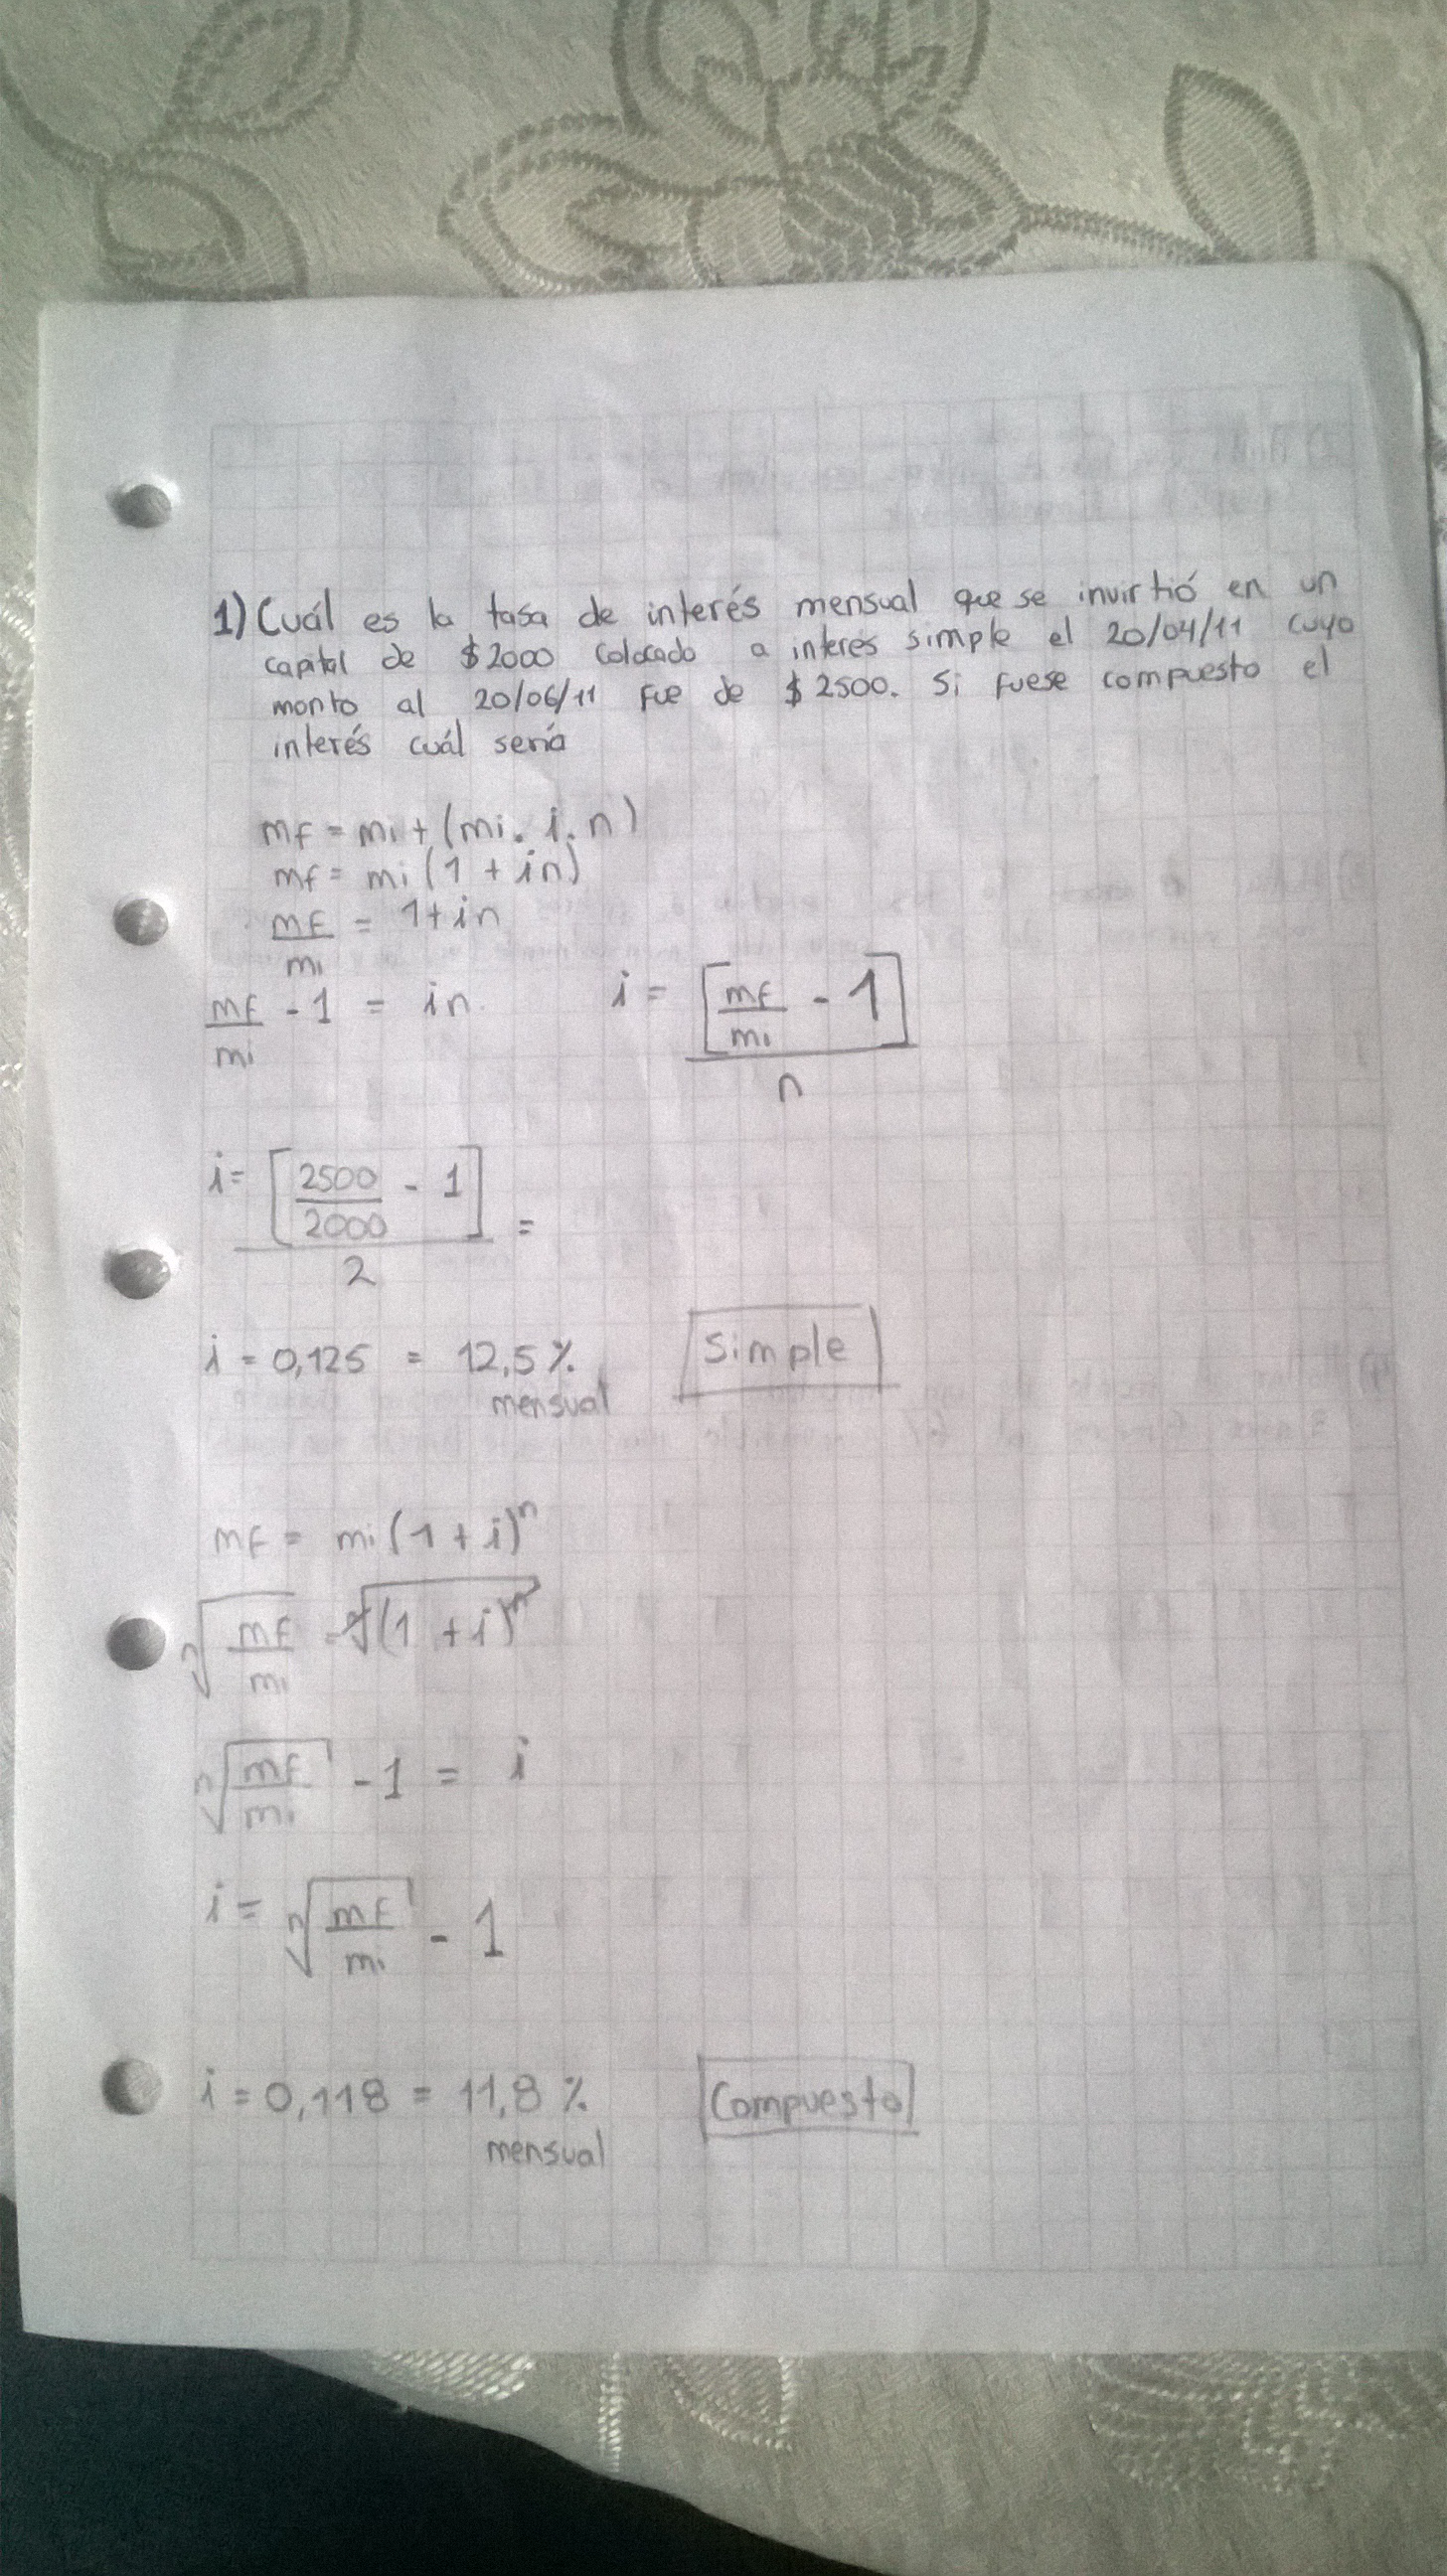 1) Cuál es la tasa de interés mensual que se invirtió en un
capital de $2000 colocado a interes simple el 20/04/11 cuyo
monto al 20/06/11 fue de $2500. Si fuese compuesto el
interés cuál sería
mf = mi + (mi. i. n)
mf = mi (1 + in)
mf/mi = 1+in
mf/mi - 1 = in. i = [mf/mi - 1]/n
i = [2500/2000 - 1]/2 =
i = 0,125 = 12,5 % Simple
mensual
mf = mi (1 + i)ⁿ
ⁿ√(mf/mi) = ⁿ√(1 + i)ⁿ
ⁿ√(mf/mi) - 1 = i
i = ⁿ√(mf/mi) - 1
i = 0,118 = 11,8 % Compuesto
mensual